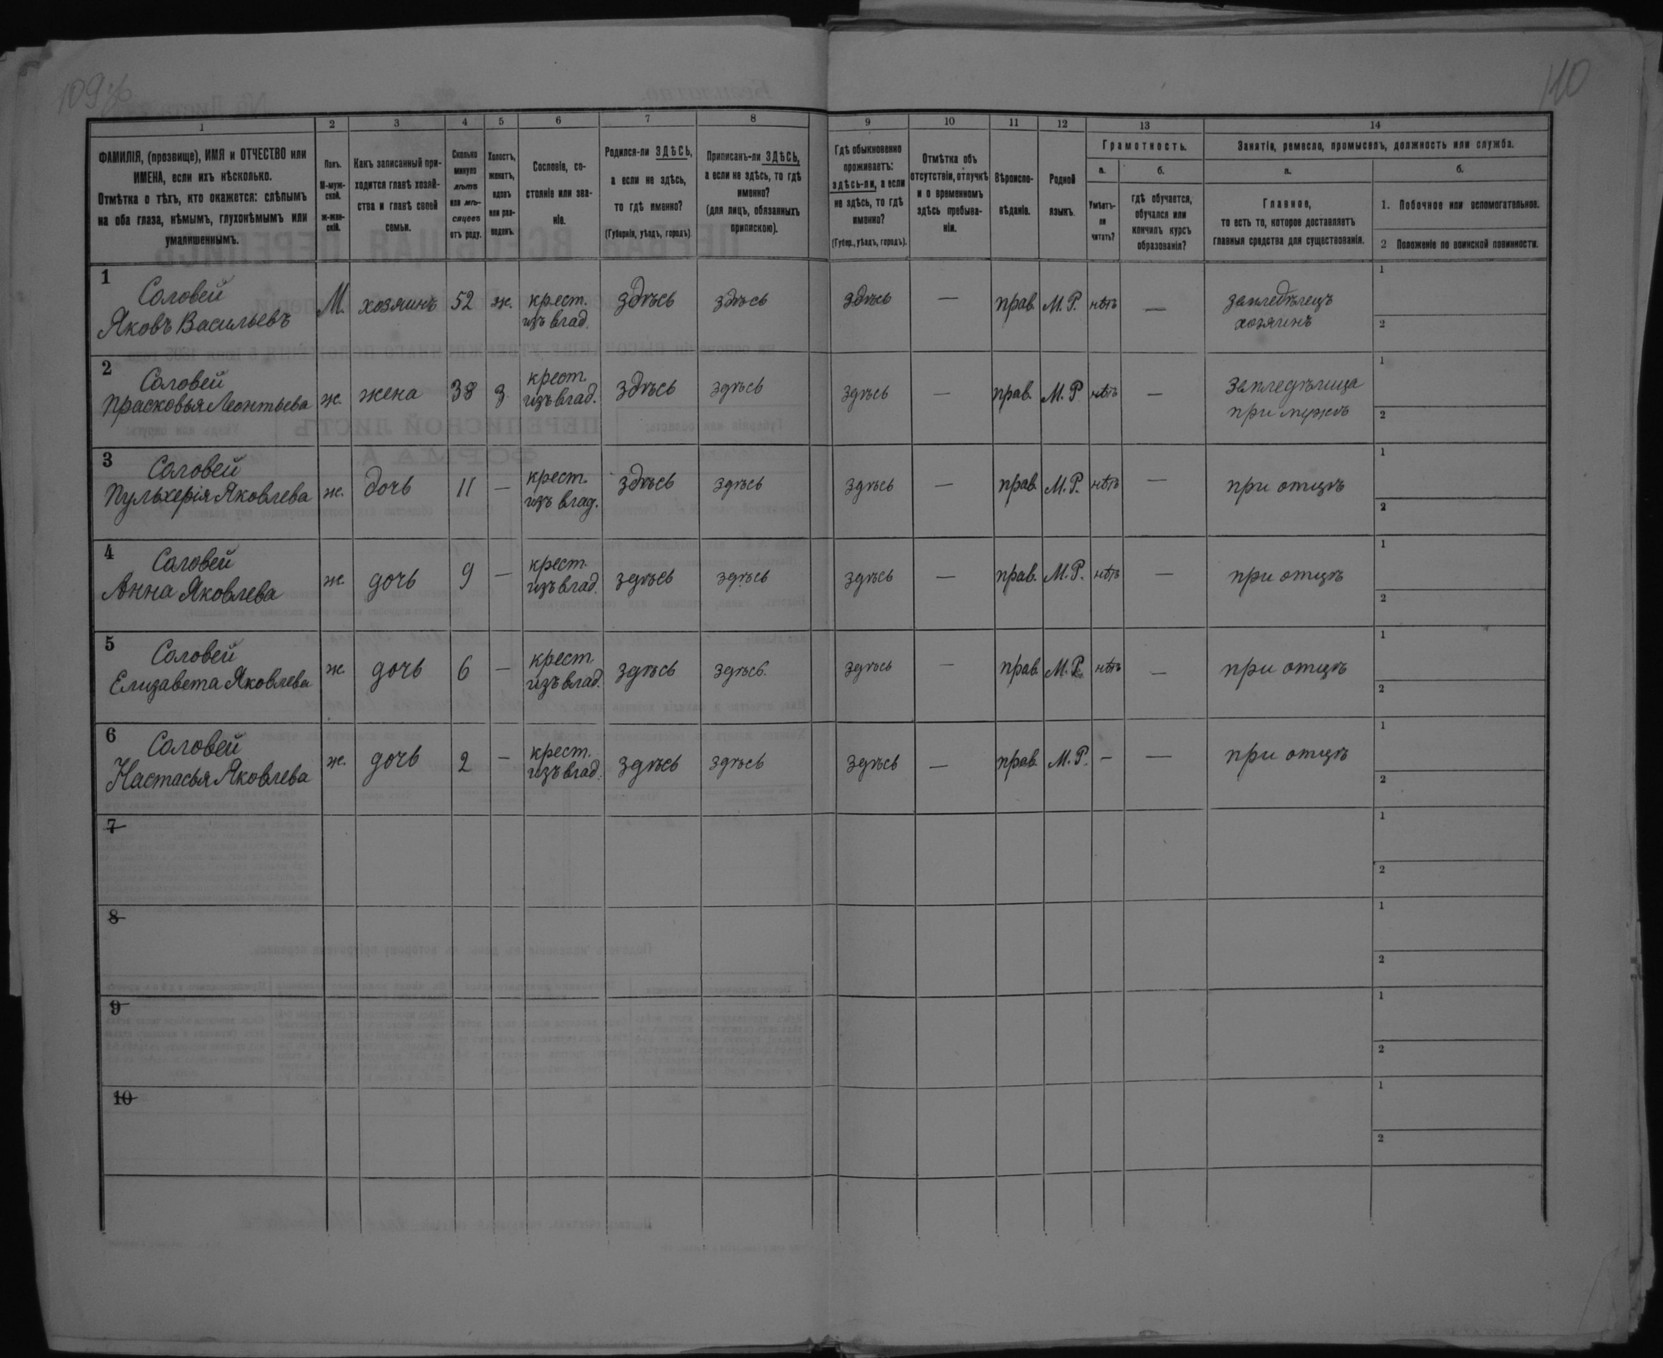 109
110
1
2
3
4
5
6
7
8
9
10
11
12
13
14
ФАМИЛІЯ, (прозвище), ИМЯ и ОТЧЕСТВО или
ИМЕНА, если ихъ нѣсколько.
Отмѣтка о тѣхъ, кто окажется: слѣпымъ
на оба глаза, нѣмымъ, глухонѣмымъ или
умалишеннымъ.
Полъ.
М-муж-
ской.
ж-жен-
скій.
Какъ записанный при-
ходится главѣ хозяй-
ства и главѣ своей
семьи.
Сколько
минуло
лѣтъ
или мѣ-
сяцевъ
отъ роду.
Холостъ,
женатъ,
вдовъ
или раз-
веденъ.
Сословіе, со-
стояніе или зва-
ніе.
Родился-ли ЗДѢСЬ,
а если не здѣсь,
то гдѣ именно?
(Губернія, уѣздъ, городъ).
Приписанъ-ли ЗДѢСЬ,
а если не здѣсь, то гдѣ
именно?
(для лицъ, обязанныхъ
припискою).
Гдѣ обыкновенно
проживаетъ:
здѣсь-ли, а если
не здѣсь, то гдѣ
именно?
(Губер., уѣздъ, городъ).
Отмѣтка объ
отсутствіи, отлучкѣ
и о временномъ
здѣсь пребыва-
ніи.
Вѣроиспо-
вѣданіе.
Родной
языкъ.
Грамотность.
а.
Умѣетъ-
ли
читать?
б.
гдѣ обучается,
обучался или
кончилъ курсъ
образованія?
Занятіе, ремесло, промыселъ, должность или служба.
а.
Главное,
то есть то, которое доставляетъ
главныя средства для существованія.
б.
1. Побочное или вспомогательное.
2 Положеніе по воинской повинности.
1
Соловей
Яковъ Васильевъ
М.
хозяинъ
52
ж.
крест.
изъ влад.
здѣсь
здѣсь
здѣсь
—
прав.
М.Р.
нѣтъ
—
земледѣлецъ
хозяинъ
1
2
2
Соловей
Прасковья Леонтьева
ж.
жена
38
з
крест.
изъ влад.
здѣсь
здѣсь
здѣсь
—
прав.
М.Р
нѣтъ
—
земледѣлица
при мужѣ
1
2
3
Соловей
Пульхерія Яковлева
ж.
дочь
11
—
крест.
изъ влад.
здѣсь
здѣсь
здѣсь
—
прав.
М.Р.
нѣтъ
—
при отцѣ
1
2
4
Соловей
Анна Яковлева
ж.
дочь
9
—
крест.
изъ влад.
здѣсь
здѣсь
здѣсь
—
прав.
М.Р.
нѣтъ
—
при отцѣ
1
2
5
Соловей
Елизавета Яковлева
ж.
дочь
6
—
крест
изъ влад.
здѣсь
здѣсь.
здѣсь
—
прав.
М.Р.
нѣтъ
—
при отцѣ
1
2
6
Соловей
Настасья Яковлева
ж.
дочь
2
—
крест.
изъ влад.
здѣсь
здѣсь
здѣсь
—
прав.
М.Р.
—
—
при отцѣ
1
2
7
1
2
8
1
2
9
1
2
10
1
2